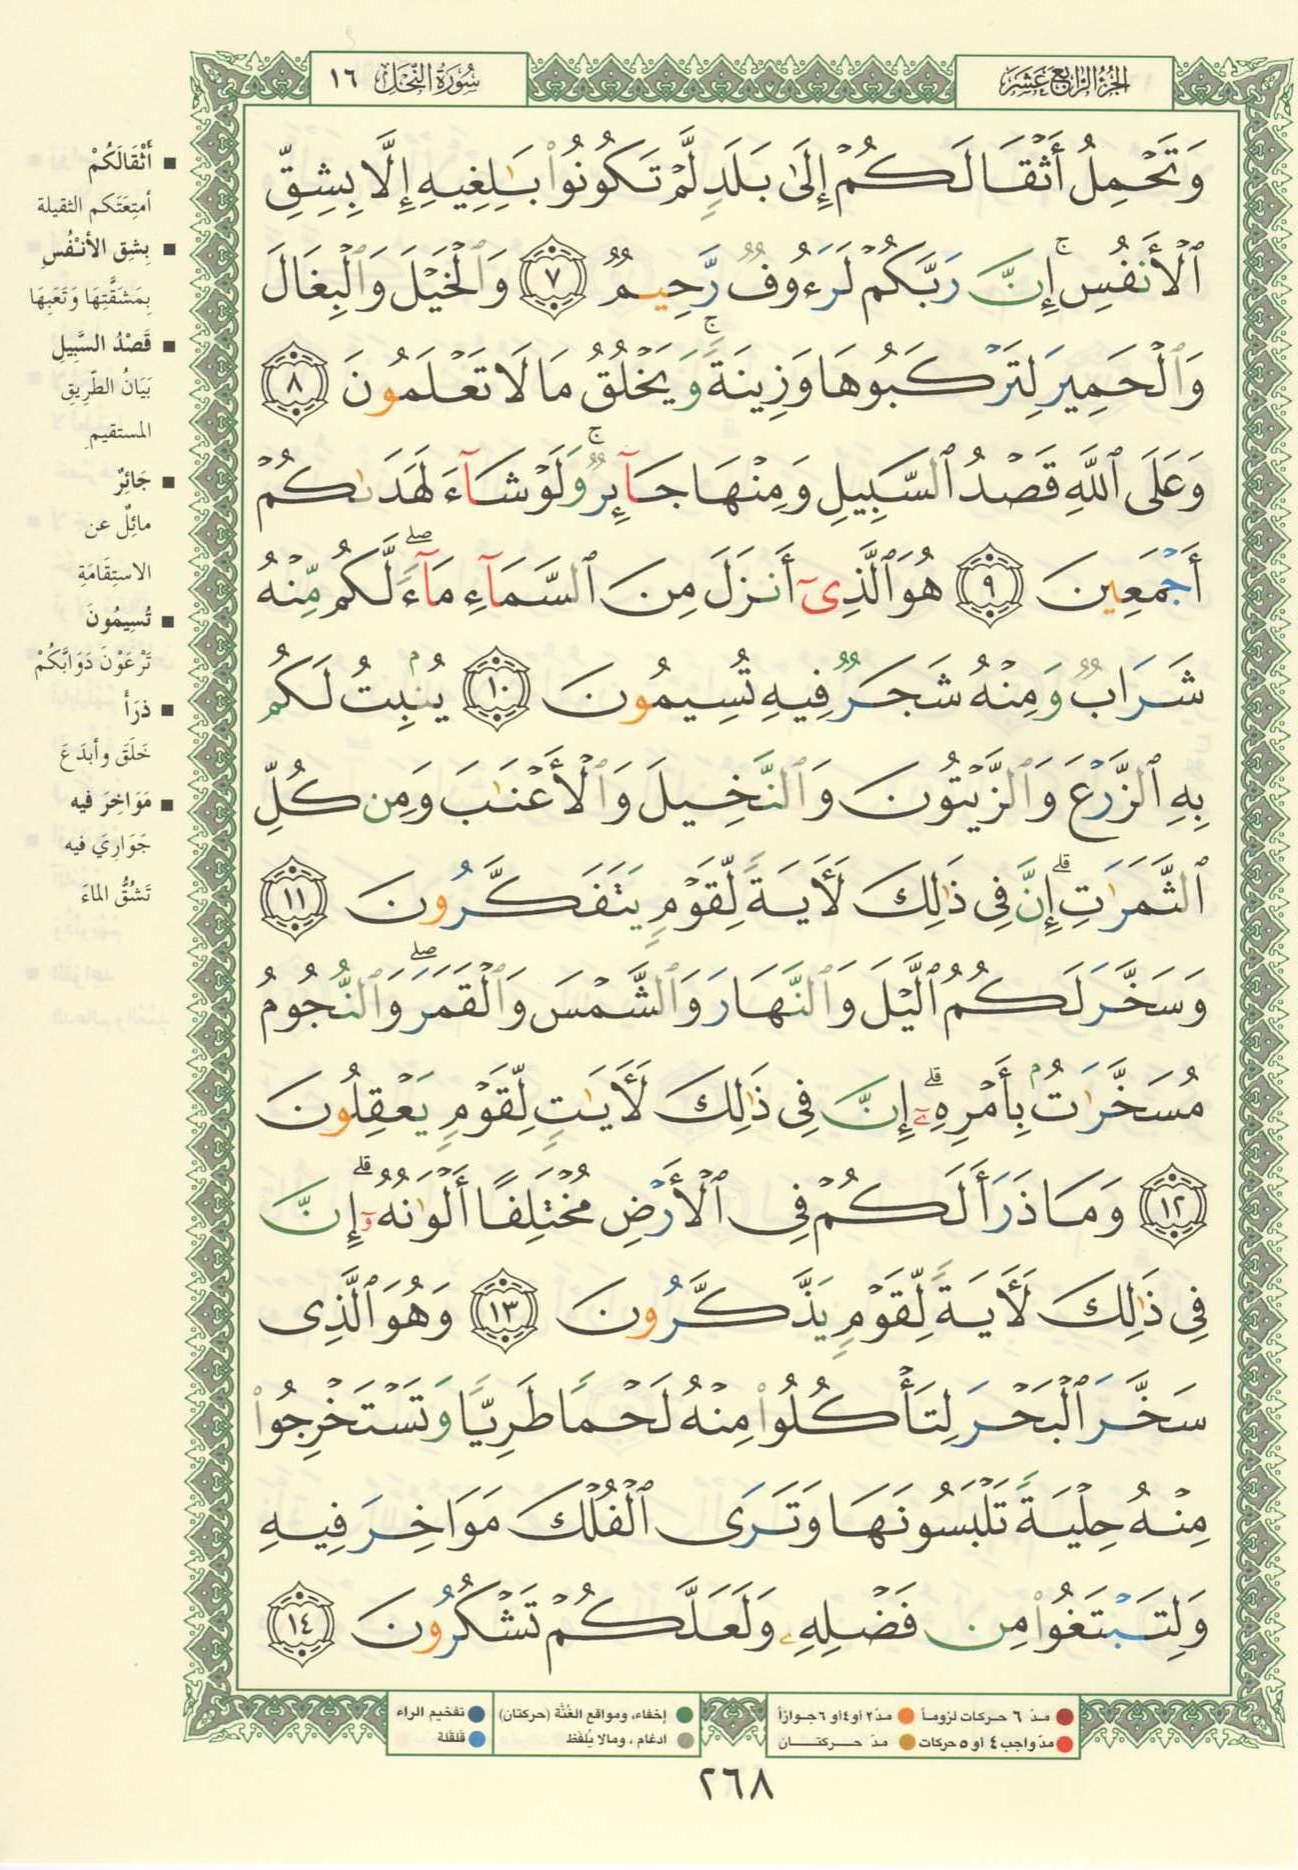 الجزء الرابع عشر
سورة النحل ١٦
وَتَحْمِلُ أَثْقَالَكُمْ إِلَىٰ بَلَدٍ لَّمْ تَكُونُوا۟ بَـٰلِغِيهِ إِلَّا بِشِقِّ
ٱلْأَنفُسِ ۚ إِنَّ رَبَّكُمْ لَرَءُوفٌ رَّحِيمٌ ۝٧ وَٱلْخَيْلَ وَٱلْبِغَالَ
وَٱلْحَمِيرَ لِتَرْكَبُوهَا وَزِينَةً ۚ وَيَخْلُقُ مَا لَا تَعْلَمُونَ ۝٨
وَعَلَى ٱللَّهِ قَصْدُ ٱلسَّبِيلِ وَمِنْهَا جَآئِرٌ ۚ وَلَوْ شَآءَ لَهَدَىٰكُمْ
أَجْمَعِينَ ۝٩ هُوَ ٱلَّذِىٓ أَنزَلَ مِنَ ٱلسَّمَآءِ مَآءً ۖ لَّكُم مِّنْهُ
شَرَابٌ وَمِنْهُ شَجَرٌ فِيهِ تُسِيمُونَ ۝١٠ يُنۢبِتُ لَكُم
بِهِ ٱلزَّرْعَ وَٱلزَّيْتُونَ وَٱلنَّخِيلَ وَٱلْأَعْنَـٰبَ وَمِن كُلِّ
ٱلثَّمَرَٰتِ ۗ إِنَّ فِى ذَٰلِكَ لَـَٔايَةً لِّقَوْمٍ يَتَفَكَّرُونَ ۝١١
وَسَخَّرَ لَكُمُ ٱلَّيْلَ وَٱلنَّهَارَ وَٱلشَّمْسَ وَٱلْقَمَرَ ۖ وَٱلنُّجُومُ
مُسَخَّرَٰتٌۢ بِأَمْرِهِۦٓ ۗ إِنَّ فِى ذَٰلِكَ لَـَٔايَـٰتٍ لِّقَوْمٍ يَعْقِلُونَ
۝١٢ وَمَا ذَرَأَ لَكُمْ فِى ٱلْأَرْضِ مُخْتَلِفًا أَلْوَٰنُهُۥٓ ۗ إِنَّ
فِى ذَٰلِكَ لَـَٔايَةً لِّقَوْمٍ يَذَّكَّرُونَ ۝١٣ وَهُوَ ٱلَّذِى
سَخَّرَ ٱلْبَحْرَ لِتَأْكُلُوا۟ مِنْهُ لَحْمًا طَرِيًّا وَتَسْتَخْرِجُوا۟
مِنْهُ حِلْيَةً تَلْبَسُونَهَا وَتَرَى ٱلْفُلْكَ مَوَاخِرَ فِيهِ
وَلِتَبْتَغُوا۟ مِن فَضْلِهِۦ وَلَعَلَّكُمْ تَشْكُرُونَ ۝١٤
■ أَثْقَالَكُمْ
أمتِعَتَكم الثقيلة
■ بِشِق الأنْفُسِ
بِمَشَقَّتِهَا وَتَعَبِهَا
■ قَصْدُ السَّبِيلِ
بَيَانُ الطّرِيقِ
المستقيمِ
■ جَائِرٌ
مائِلٌ عن
الاستِقَامَةِ
■ تُسِيمُونَ
تَرْعَوْنَ دَوَابَّكُمْ
■ ذرَأ
خَلَقَ وأبدَعَ
■ مَوَاخِرَ فيه
جَوَارِيَ فيه
تَشُقُّ الماءَ
مدّ ٦ حركات لزوماً مدّ٢ أو٤ أو ٦ جوازاً
مدّ واجب ٤ أو ٥ حركات مدّ حركتان
إخفاء، ومواقع الغُنَّة (حركتان)
ادغام ، ومالا يُلفَظ
تفخيم الراء
قلقلة
٢٦٨